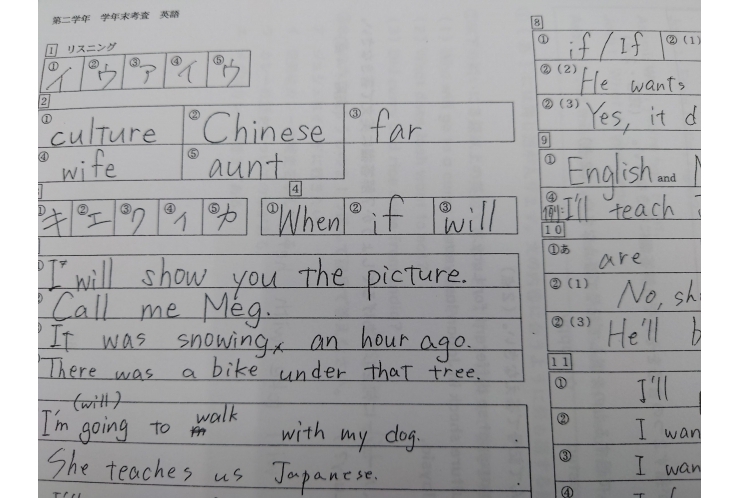 第二学年 学年末考査 英語
1 リスニング
①イ ②ウ ③ア ④イ ⑤ウ
2
①culture ②Chinese ③far
④wife ⑤aunt
4
①キ ②エ ③ク ④イ ⑤カ
①When ②if ③will
I will show you the picture.
Call me Meg.
It was snowing an hour ago.
There was a bike under that tree.
(will)
I'm going to walk with my dog.
She teaches us Japanese.
8
①if / If ②(1)
②(2) He wants
②(3) Yes, it d
9
①English and
④例:I'll teach
10
①あ are
②(1) No, sh
②(3) He'll b
11
①I'll
②I wan
③I wan
④